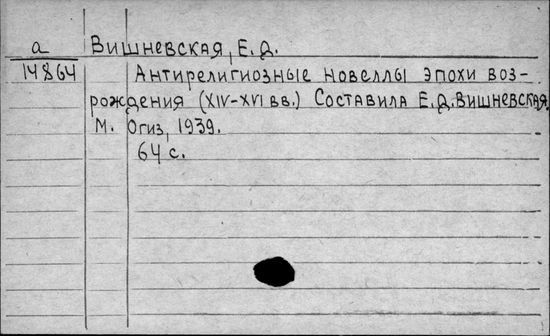 а Вишневская, Е.Д.
14864 Антирелигиозные новеллы эпохи воз-
рождения (XIV-XVI вв.) Составила Е.Д.Вишневская.
М. Огиз, 1939.
64 с.